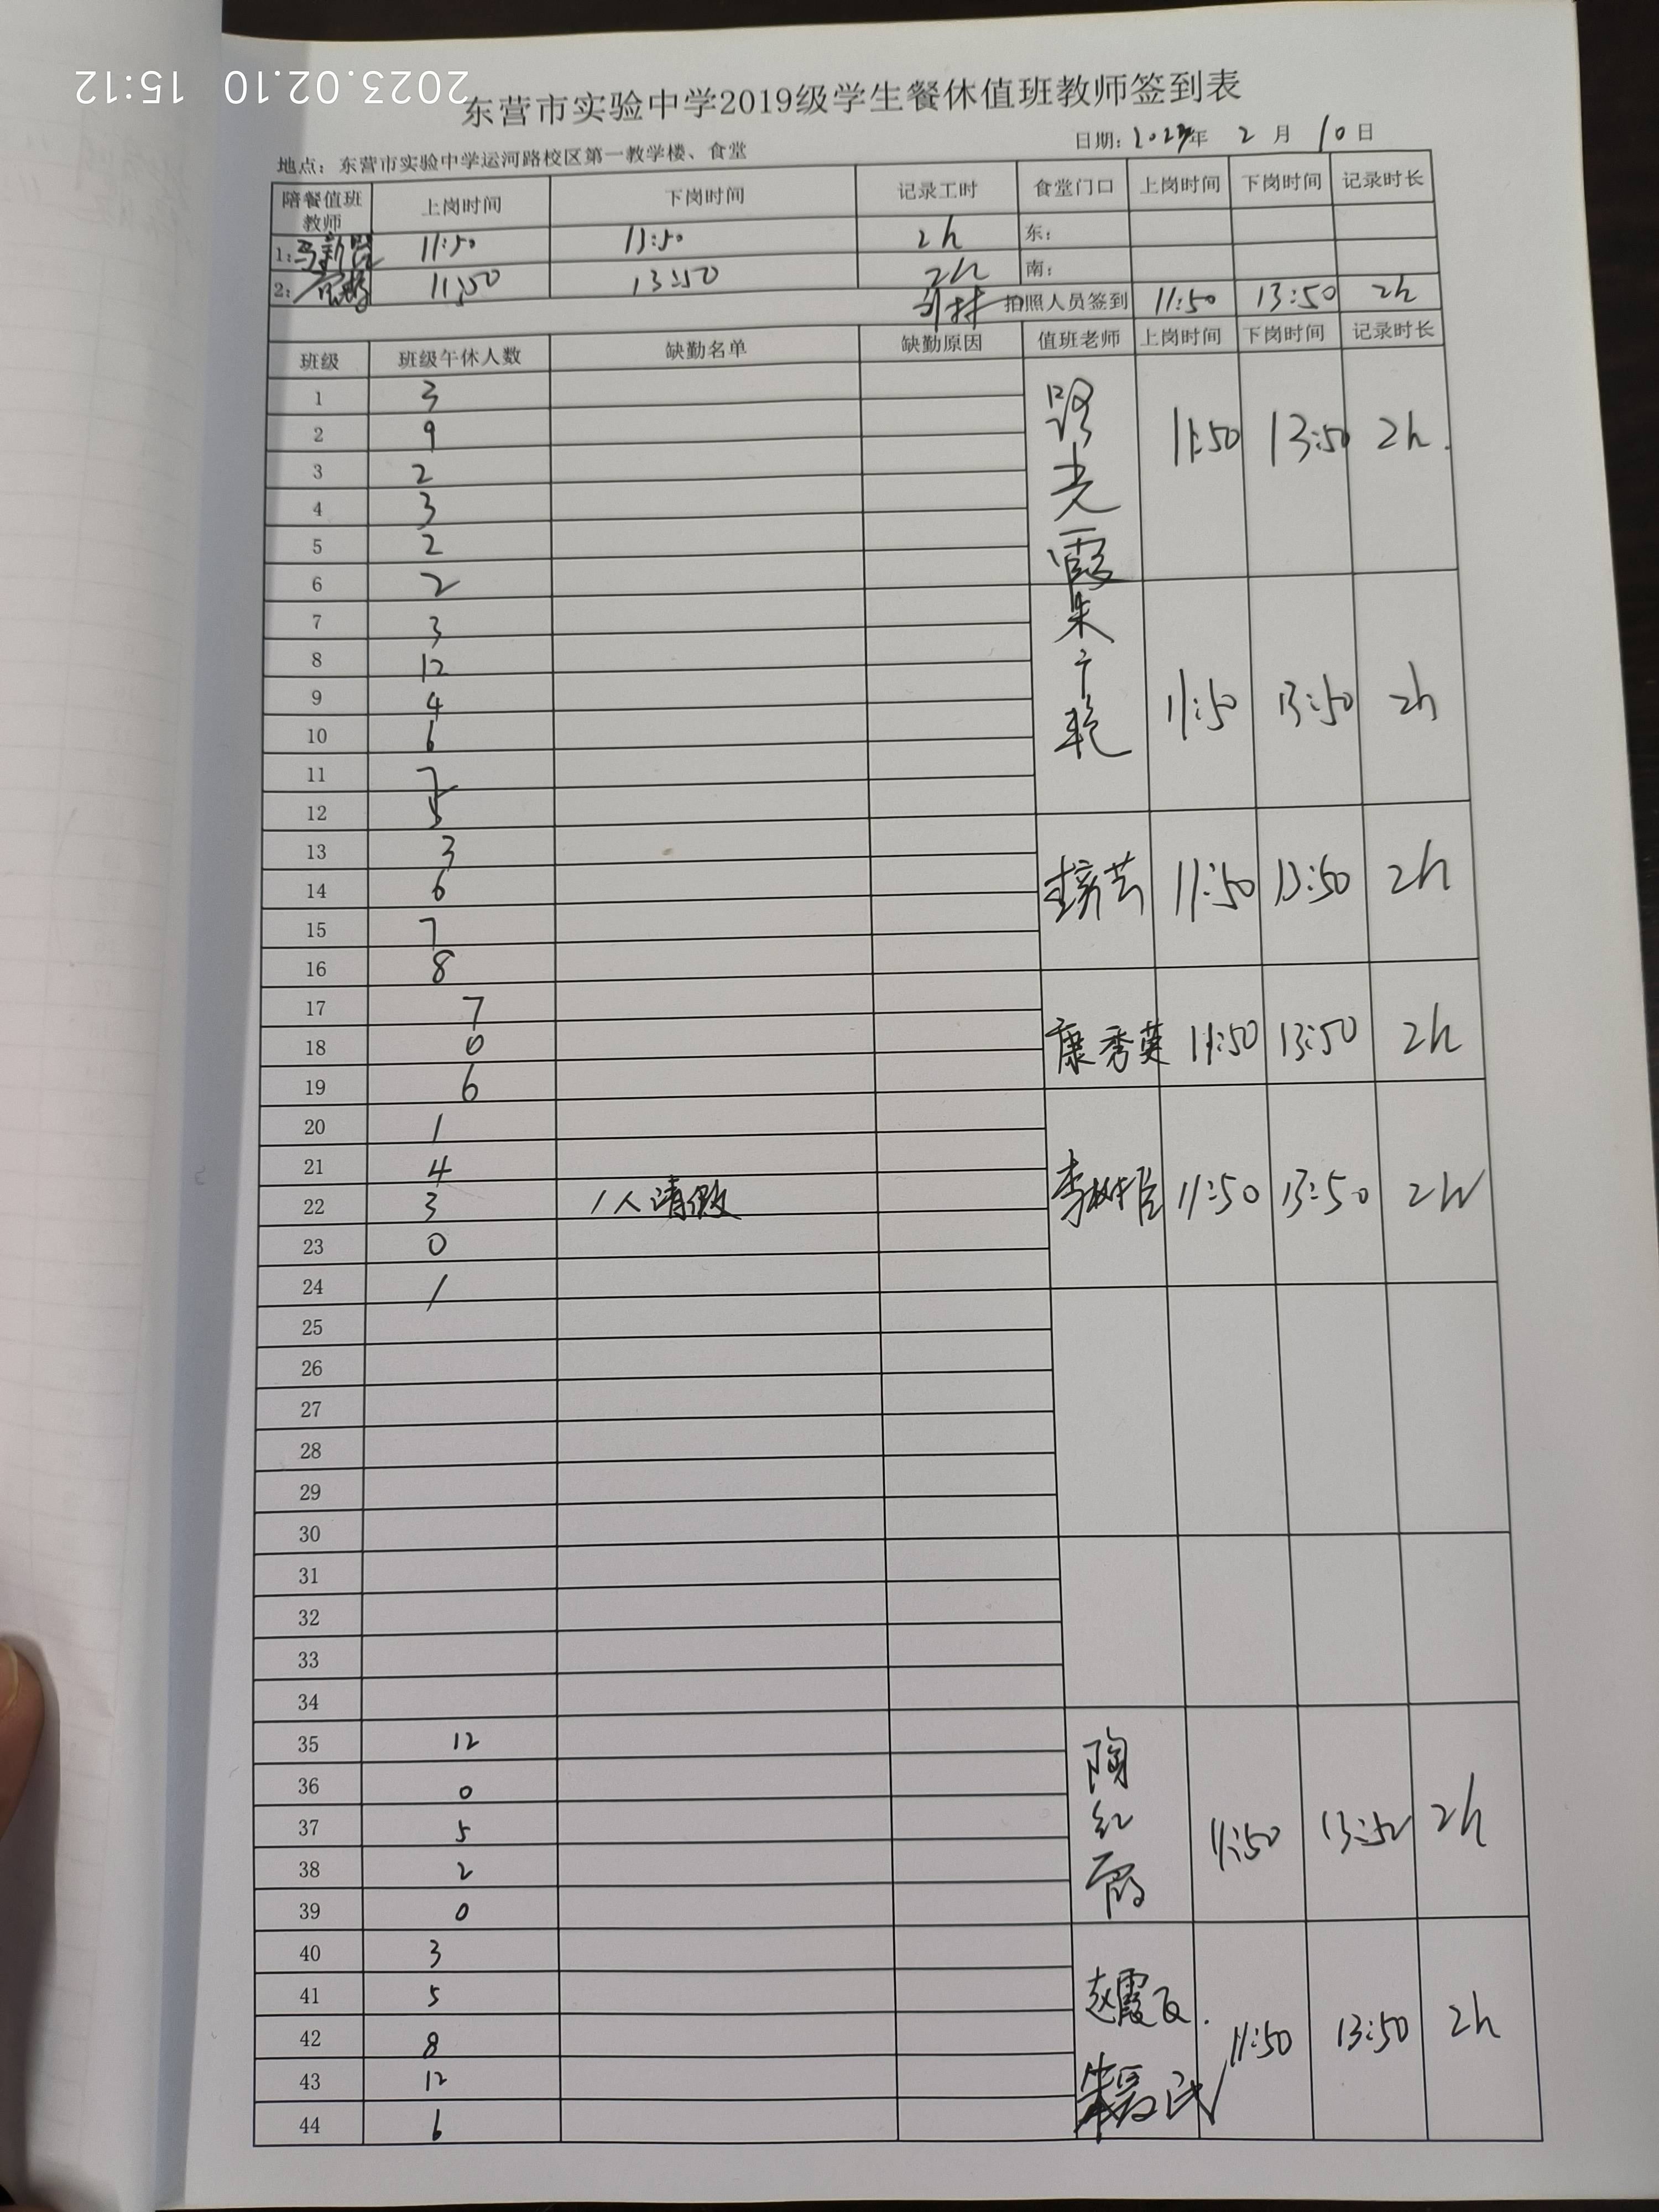 2023.02.10 15:12
东营市实验中学2019级学生餐休值班教师签到表
地点：东营市实验中学运河路校区第一教学楼、食堂 日期：2023年 2 月 10 日
陪餐值班教师 上岗时间 下岗时间 记录工时 食堂门口 上岗时间 下岗时间 记录时长
1: 11:50 13:50 2h 东：
2: 11:50 13:50 2h 南：
拍照人员签到 11:50 13:50 2h
班级 班级午休人数 缺勤名单 缺勤原因 值班老师 上岗时间 下岗时间 记录时长
1 3 路光霞 11:50 13:50 2h.
2 9
3 2
4 3
5 2
6 2
7 3 朱于艳 11:50 13:50 2h
8 12
9 4
10 6
11 7
12 5
13 3 11:50 13:50 2h
14 6
15 7
16 8
17 7 康秀英 11:50 13:50 2h
18 0
19 6
20 1 李树臣 11:50 13:50 2h
21 4
22 3 1人请假
23 0
24 1
25
26
27
28
29
30
31
32
33
34
35 12 陶红霞 11:50 13:50 2h
36 0
37 5
38 2
39 0
40 3 赵霞 11:50 13:50 2h
41 5
42 8
43 12
44 6